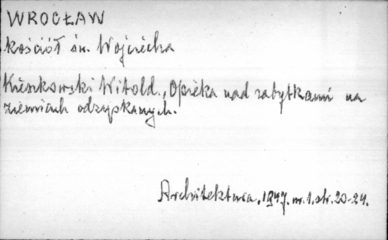 WROCŁAW
kościół św. Wojciecha
Kieszkowski Witold., Opieka nad zabytkami na
ziemiach odzyskanych.
Architektura, 1947. nr. 1, str. 20-24.